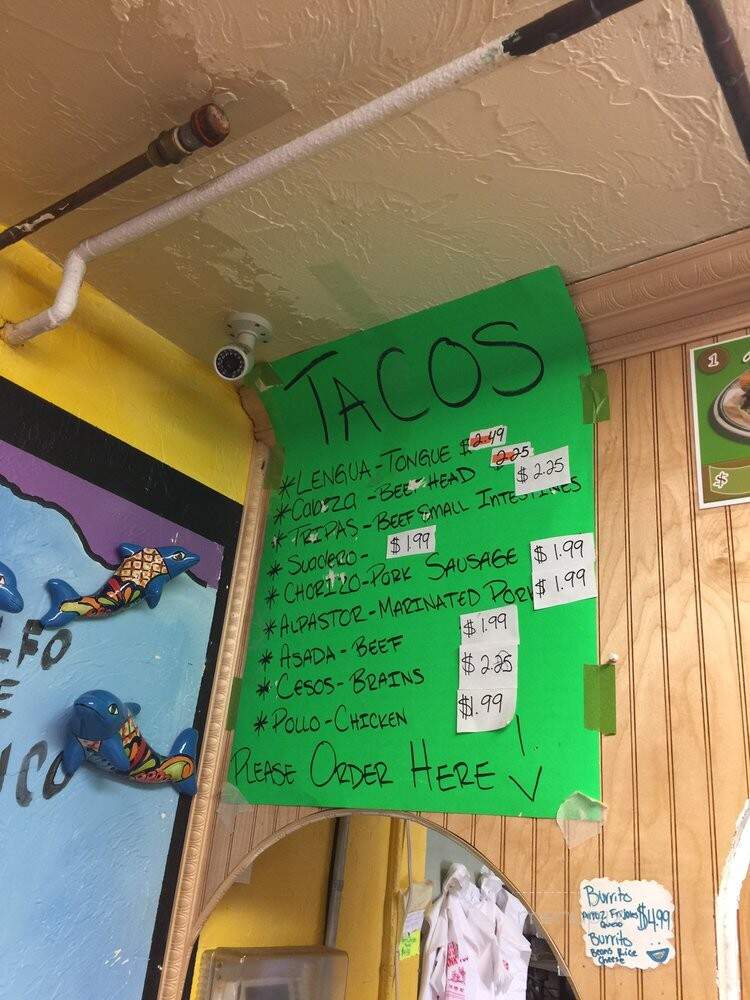 TACOS
*LENGUA-TONGUE $2.49
*Cabeza-BEEF HEAD 2.25
*TRIPAS-BEEF SMALL INTESTINES $2.25
*SUADERO- $1.99
*CHORIZO-PORK SAUSAGE $1.99
*ALPASTOR-MARINATED PORK $1.99
*ASADA-BEEF $1.99
*CESOS-BRAINS $2.25
*POLLO-CHICKEN $1.99
PLEASE ORDER HERE!
1
$
Burrito
Arroz Frijoles $4.99
Queso
Burrito
Beans Rice
Cheese